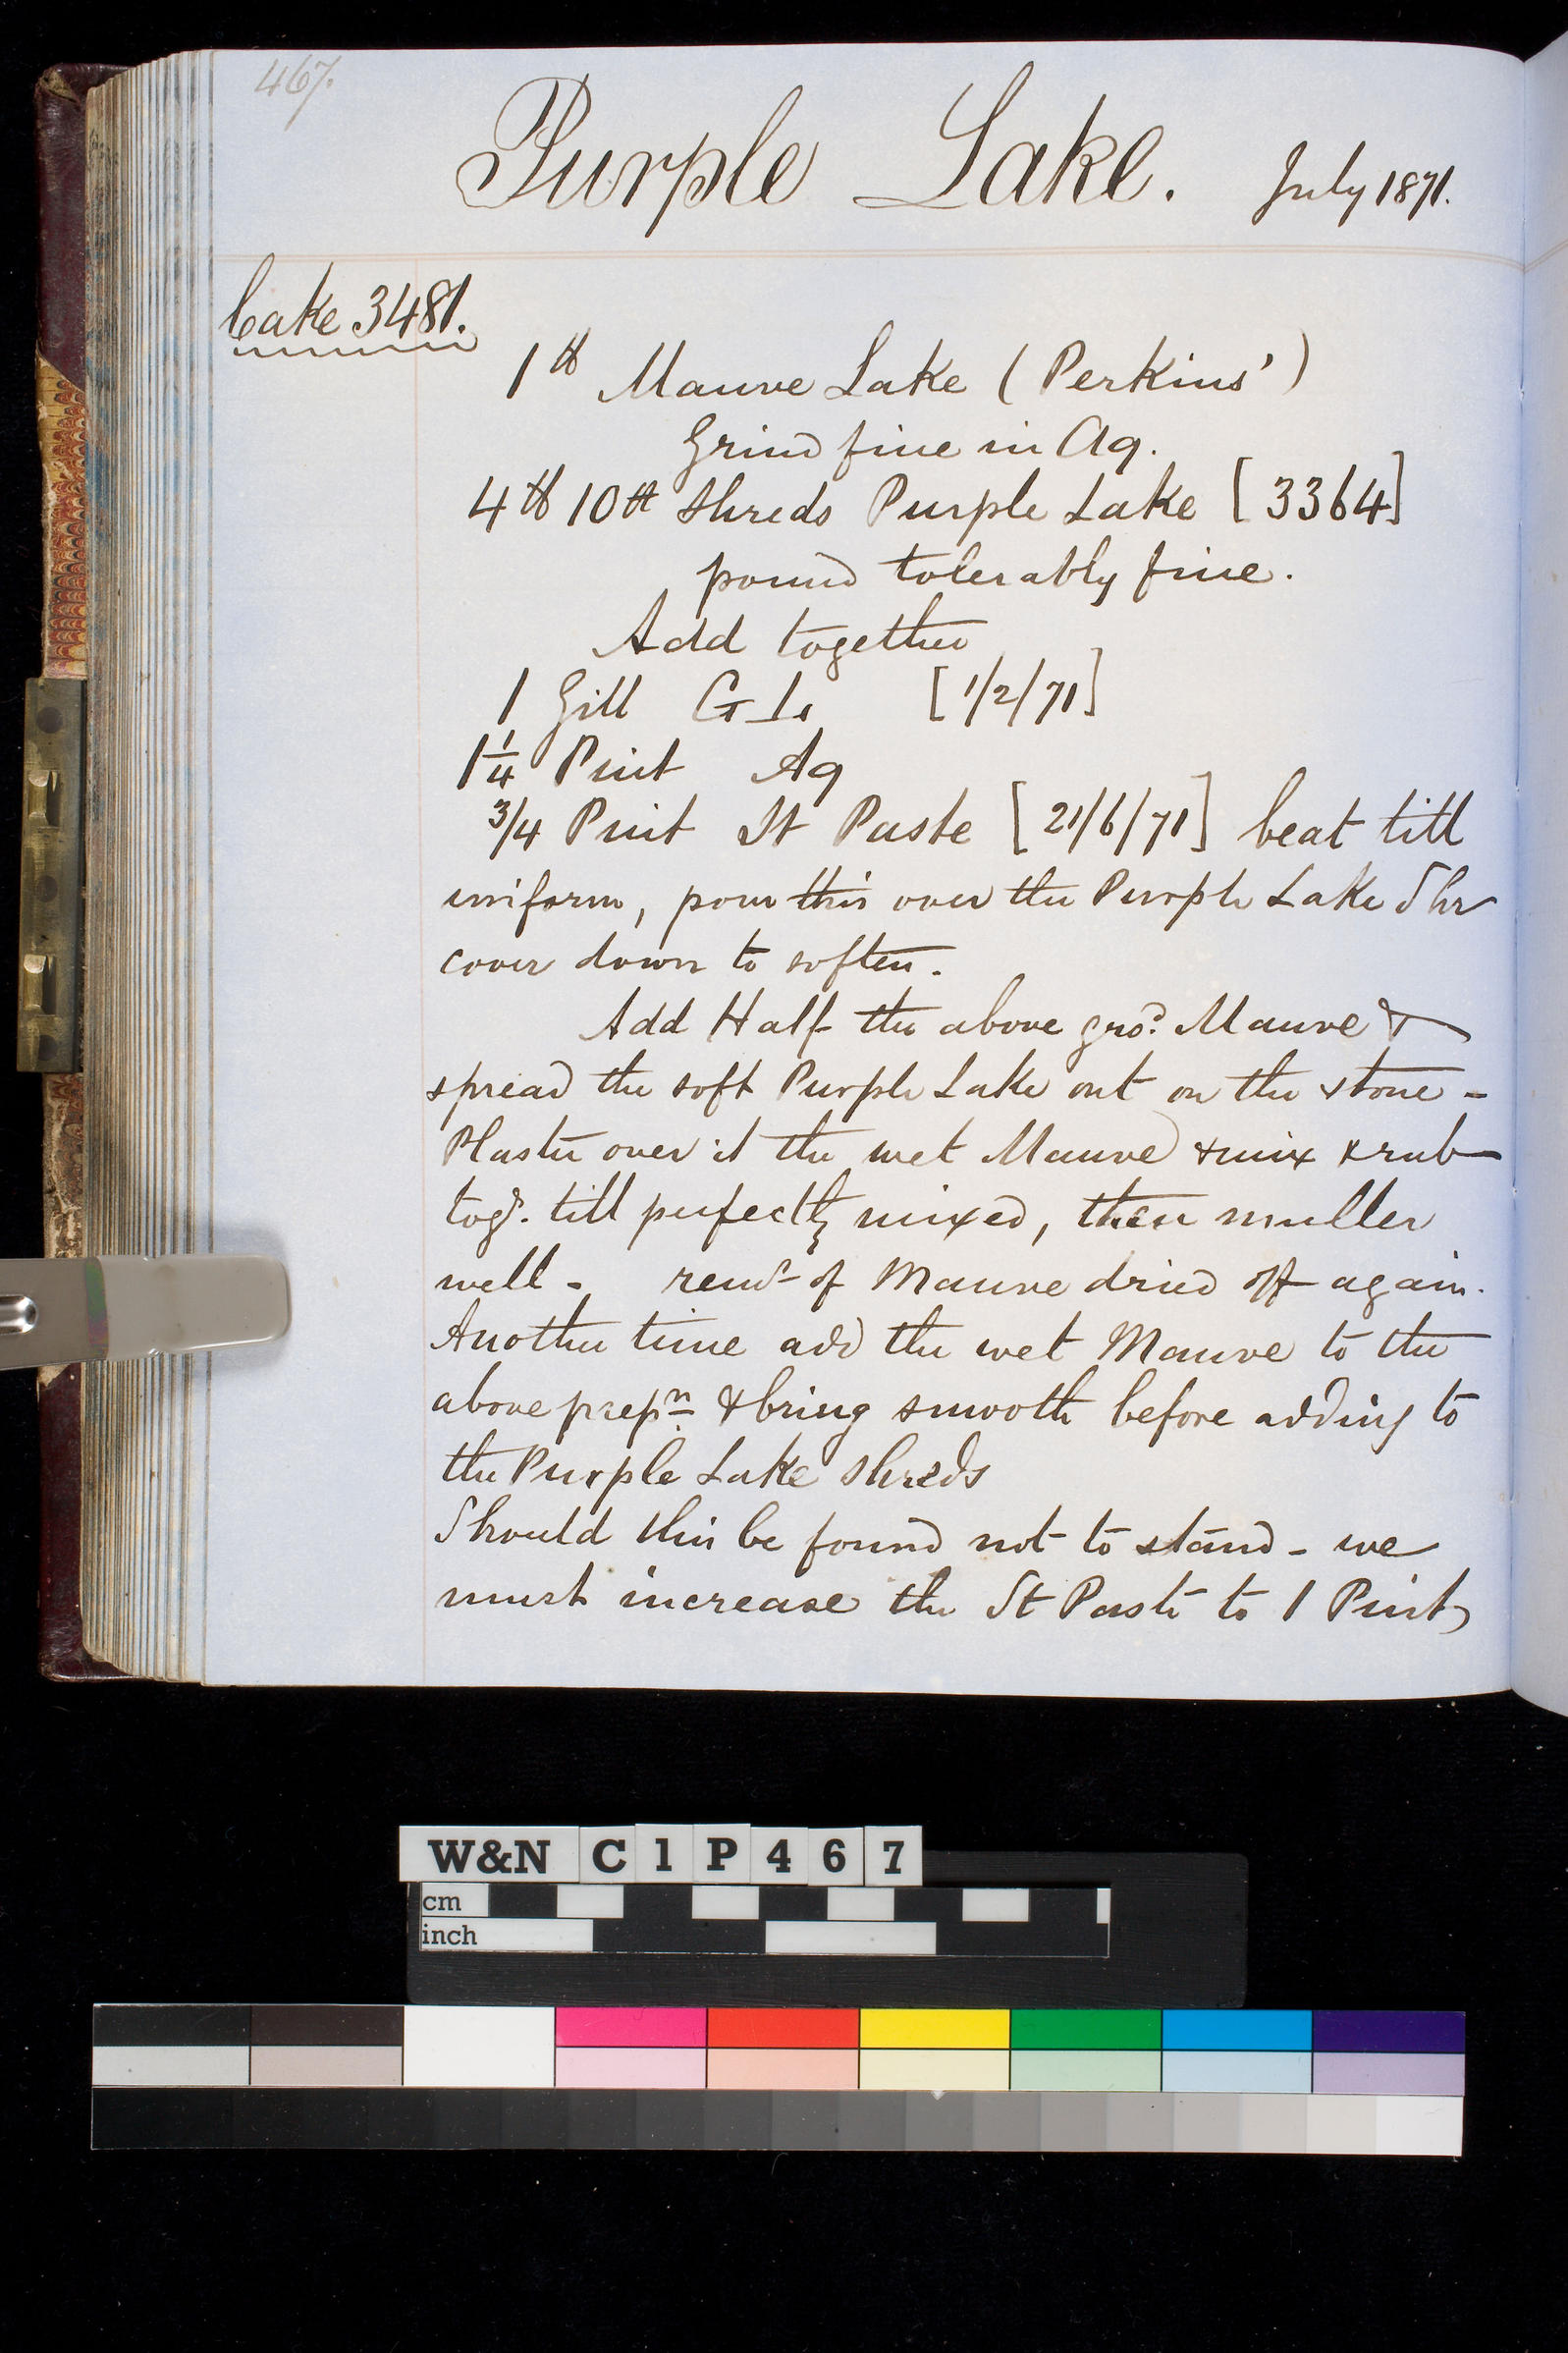 467.
Purple Lake. July 1871.
Cake 3481.
1 ℔ Mauve Lake (Perkins')
Grind fine in Aq.
4 ℔ 10 shreds Purple Lake [3364]
pound tolerably fine.
Add together
1 Gill [1/2/71]
1 1/4 Pint Aq
3/4 Pint St Paste [21/6/71] beat till
uniform, pour this over the Purple Lake Shr
cover down to soften.
Add Half the above gro.d Mauve &
spread the soft Purple Lake out on the stone -
Plaster over it the wet Mauve & mix & rub
togr. till perfectly mixed, then muller
well - remr of Mauve dried off again.
Another time add the wet Mauve to the
above prepn & bring smooth before adding to
the Purple Lake shreds
Should this be found not to stand - we
must increase the St Paste to 1 Pint
W&N C1P467
cm
inch